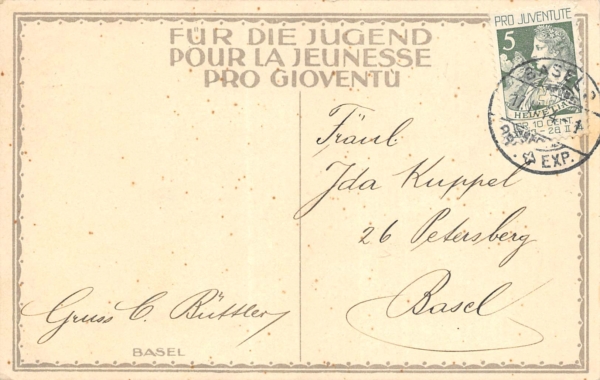 FÜR DIE JUGEND
POUR LA JEUNESSE
PRO GIOVENTÙ
PRO JUVENTUTE
5
HELVETIA
10 CENT.
BASEL
EXP.
Fräul.
Ida Kuppel
26 Petersberg
Basel
Gruss C. Büttler
BASEL